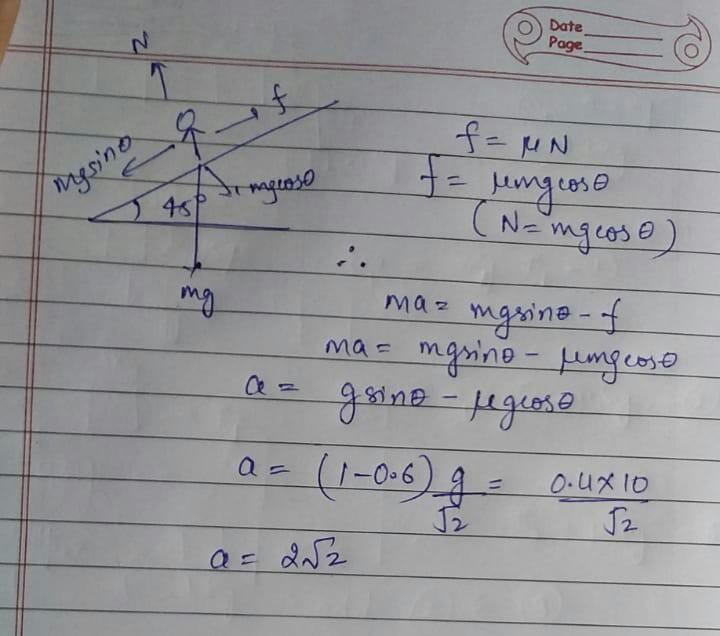 Date
Page
N
f
mgsinθ
mgcosθ
45°
mg
f = μN
f = μmgcosθ
(N = mgcosθ)
∴
ma = mgsinθ - f
ma = mgsinθ - μmgcosθ
a = gsinθ - μgcosθ
a = (1-0.6) g/√2 = 0.4×10/√2
a = 2√2